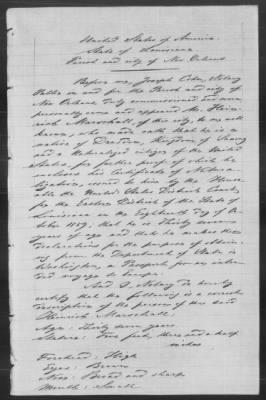 United States of America.
State of Louisiana
Parish and city of New Orleans
Before me, Joseph Cohn, Notary
Public in and for the Parish and city of
New Orleans, duly commissioned and sworn,
personally came and appeared Mr. Hein-
rich Marschall, of this city, to me well
known, who made oath that he is a
native of Dresden, Kingdom of Saxony
and a Naturalized citizen of the United
States, for further proof of which he
encloses his Certificate of Natura-
lization, issued to him by the Honor-
able the United States District Court,
for the Eastern District of the State of
Louisiana on the Eighteenth day of
1859, that he is Thirty seven
years of age and that he makes this
declaration for the purpose of obtain-
ing from the Department of State in
Washington, a Passport for an inten-
ded voyage to Europe.
And I, Notary do hereby
certify that the following is a correct
description of the person of the said
Heinrich Marschall:
Age: Thirty seven years.
Stature: Five feet, three and a half
inches
Forehead: High
Eyes: Brown
Nose: Broad and sharp
Mouth: Small